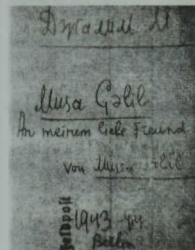 Musa Gəlil
An meinem liebe Freund
von Musa Gəlil
Feldpost
1943
Berlin